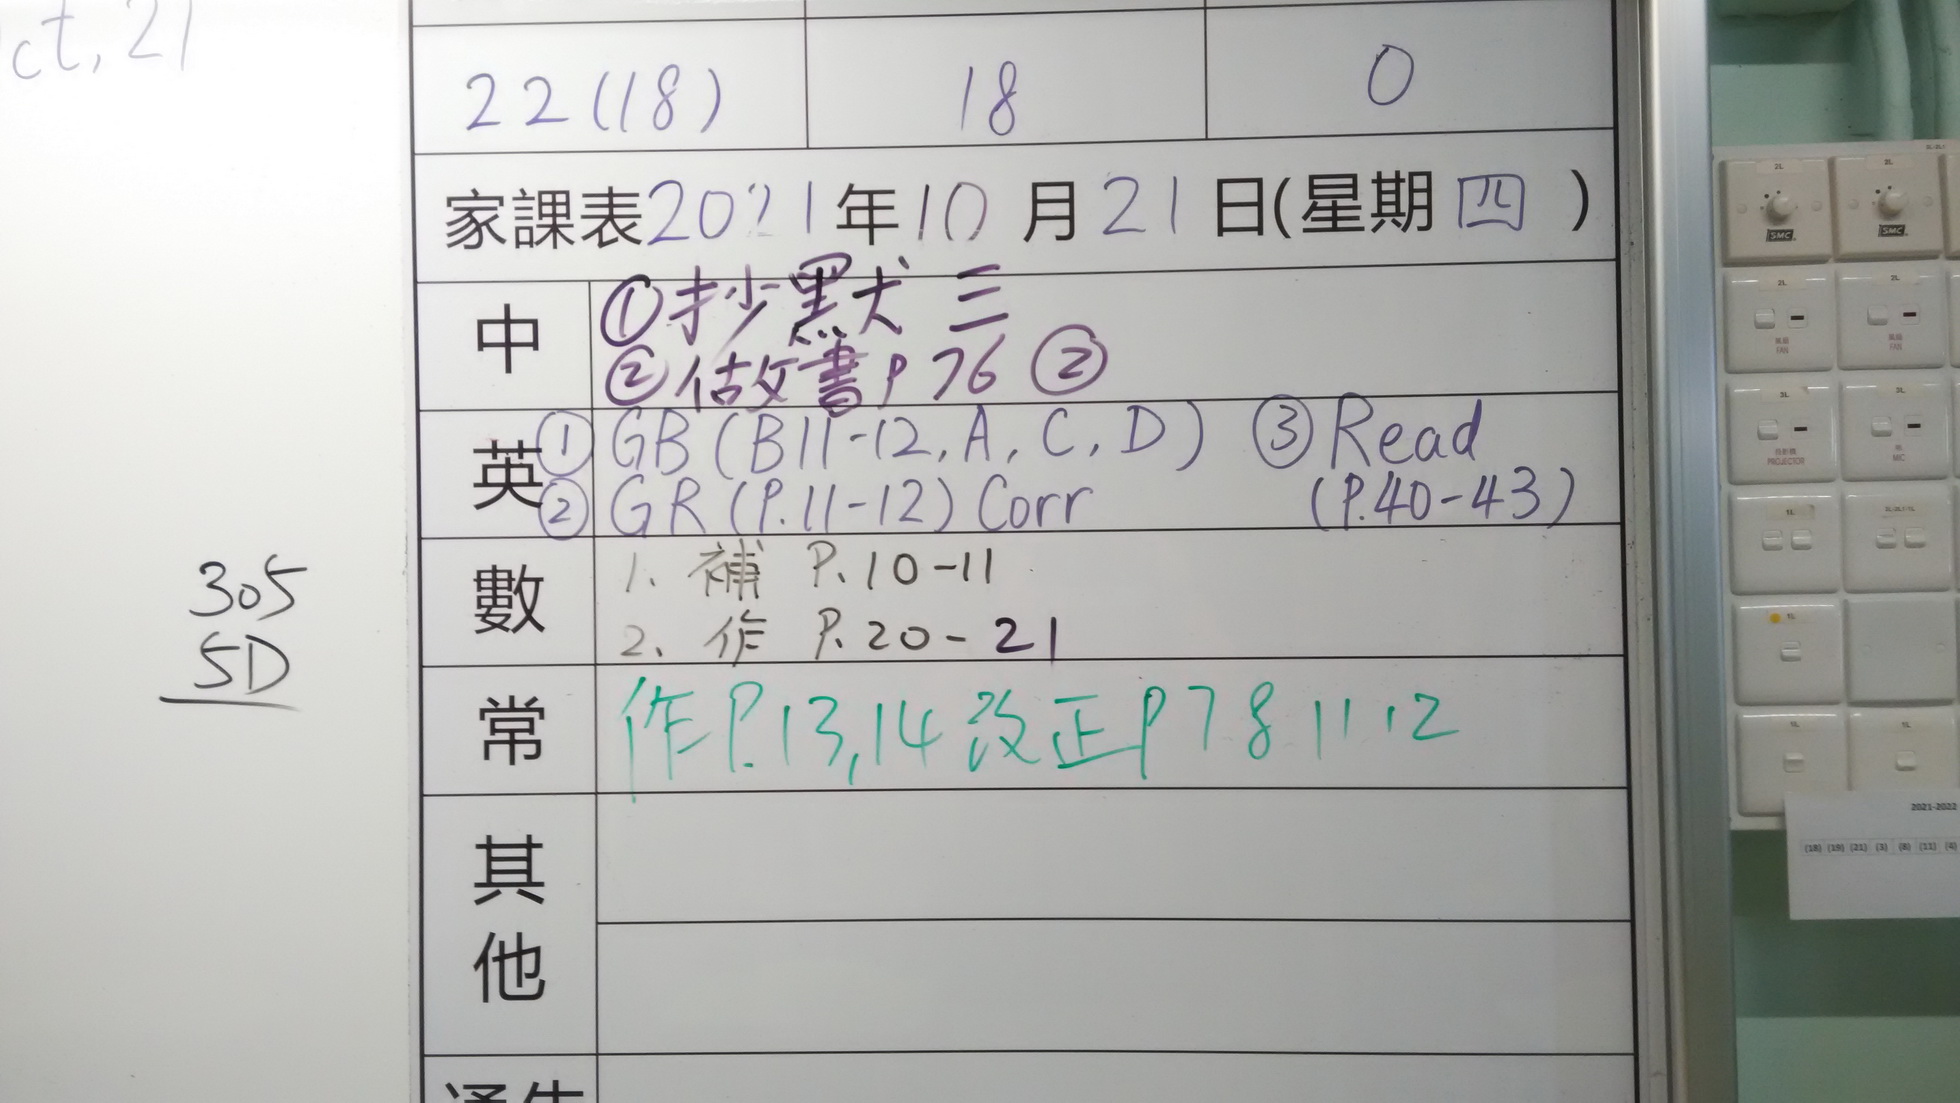 ct, 21
22(18) 18 0
家課表2021年10月21日(星期四)
中
①抄默三
②做書P76②
英
① GB (B11-12, A, C, D) ③ Read
② GR (P.11-12) Corr (P.40-43)
數
1. 補 P.10-11
2. 作 P.20-21
常
作P.13,14 改正P7 8 11 12
其他
305
5D
2L
2L
SMC
SMC
2L
2L
風扇
FAN
風扇
FAN
3L
3L
投影機
PROJECTOR
MIC
1L
1L
1L
1L
2021-2022
(18) (19) (21) (3) (8) (11) (4)